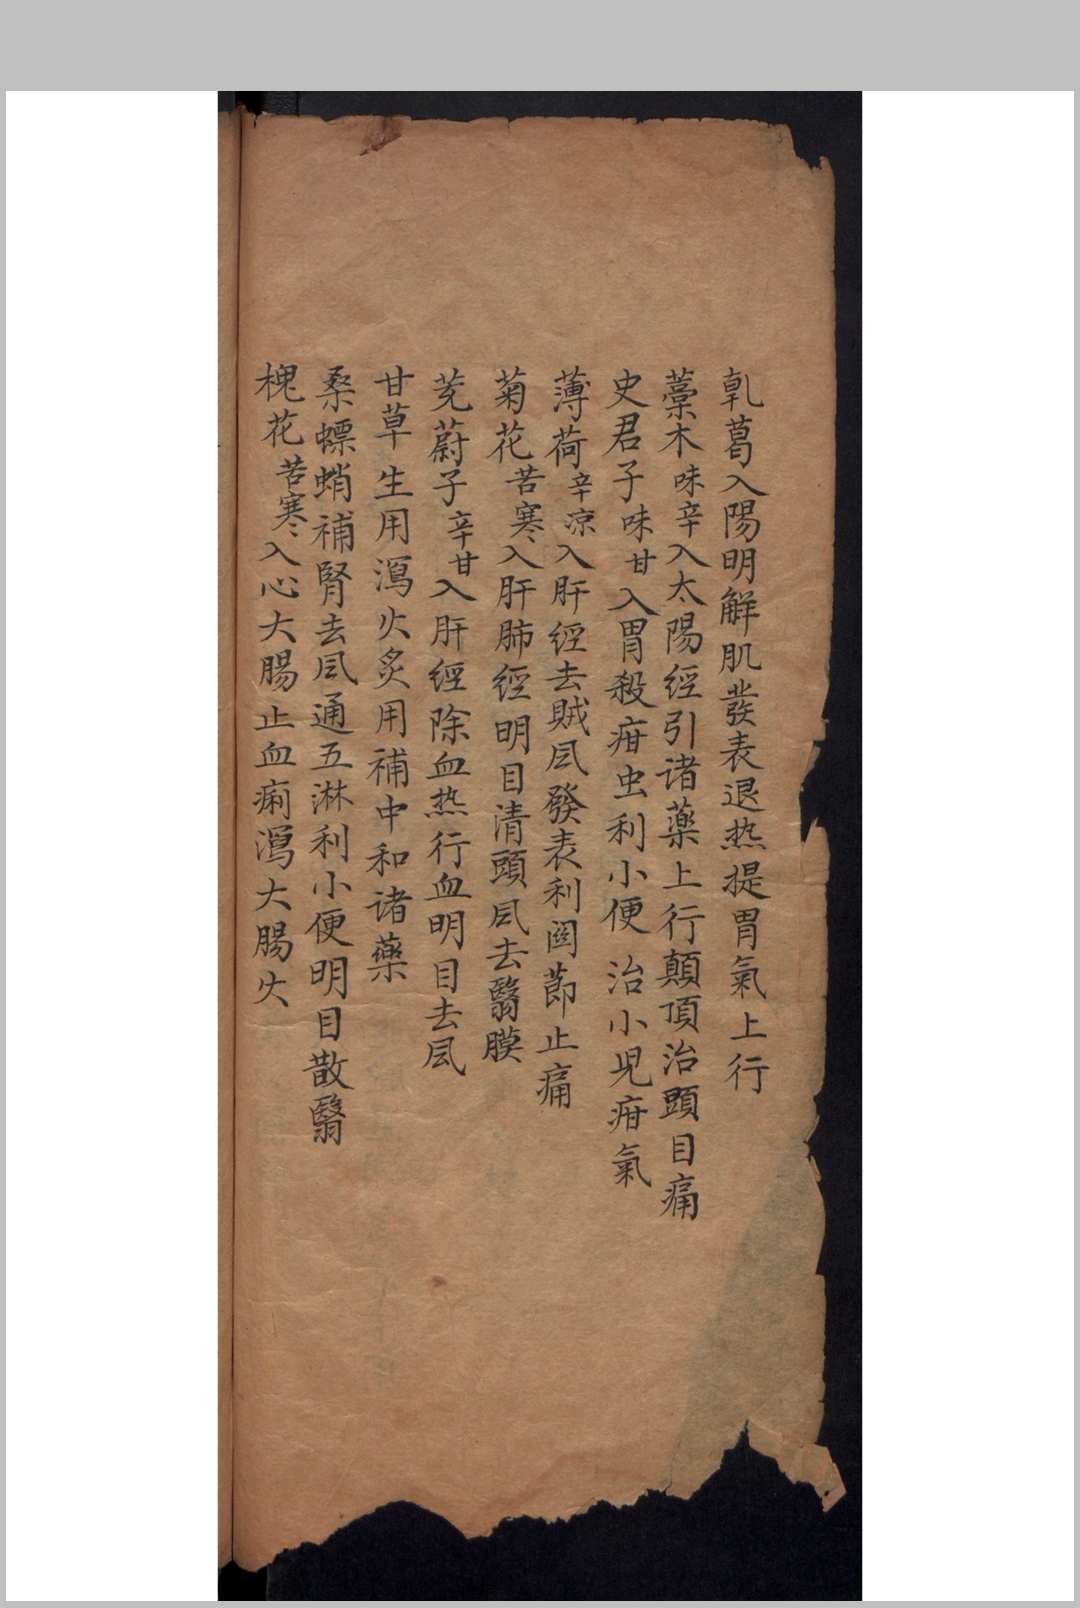 乹葛入陽明解肌發表退热提胃氣上行
藁木味辛入太陽經引诸藥上行顛頂治頭目痛
史君子味甘入胃殺疳虫利小便治小児疳氣
薄荷辛凉入肝經去賊凨發表利関莭止痛
菊花苦寒入肝肺經明目清頭凨去翳膜
茺蔚子辛甘入肝經除血热行血明目去凨
甘草生用瀉火炙用補中和诸藥
桑螵蛸補腎去凨通五淋利小便明目散翳
槐花苦寒入心大腸止血痢瀉大腸火